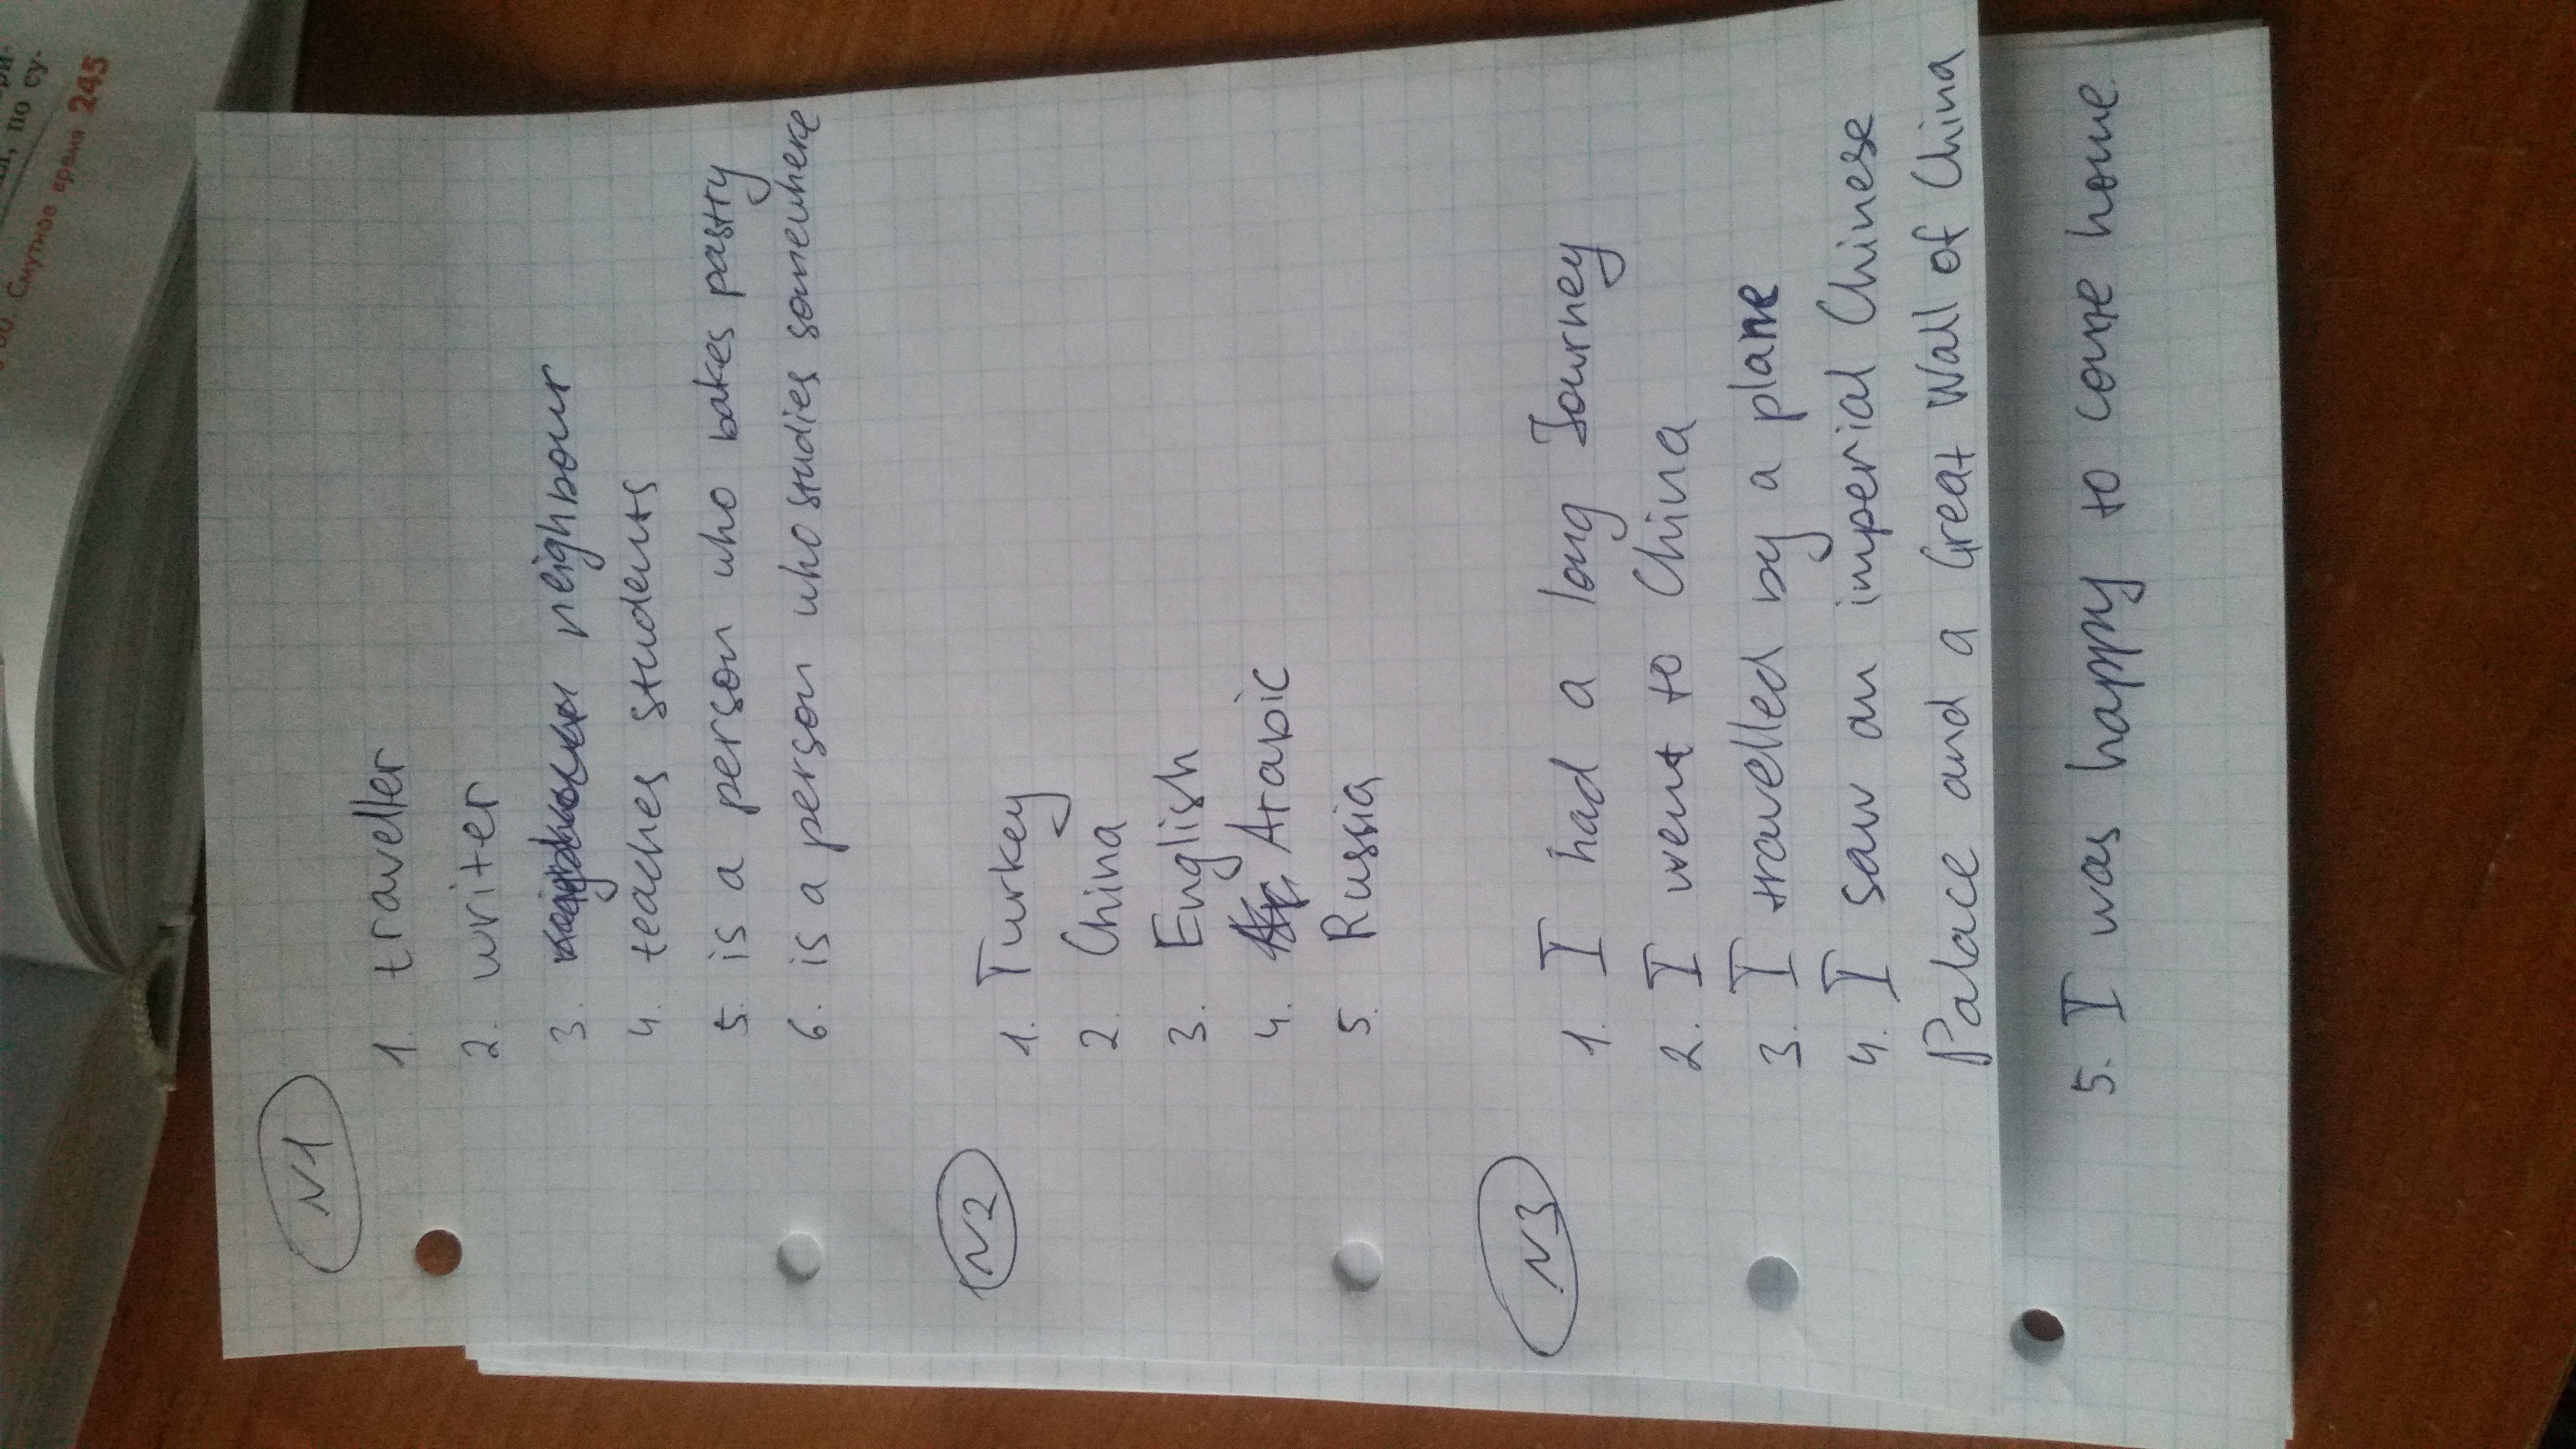 по су-
Смутное время 245
N1
1. traveller
2. writer
3. neighbour
4. teaches students
5. is a person who bakes pastry
6. is a person who studies somewhere
N2
1. Turkey
2. China
3. English
4. Arabic
5. Russia
N3
1. I had a long Journey
2. I went to China
3. I travelled by a plane
4. I saw an imperial Chinese
Palace and a Great Wall of China
5. I was happy to come home.